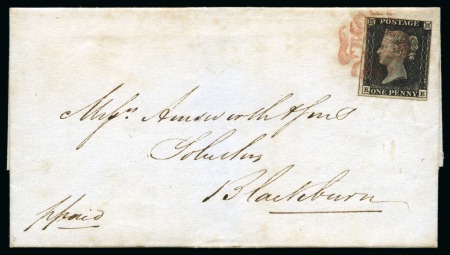 POSTAGE
K E
ONE PENNY
Messrs. Ainsworth & Sons
Solicitors
Blackburn
ppaid